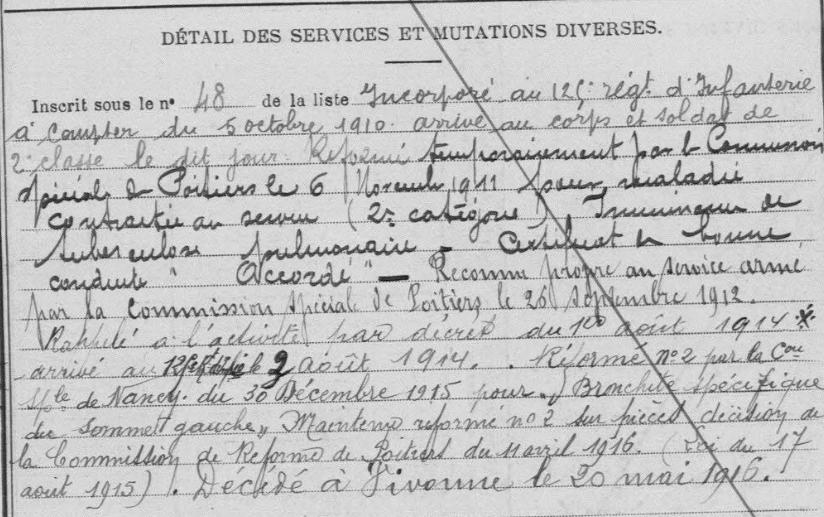 DÉTAIL DES SERVICES ET MUTATIONS DIVERSES.
Inscrit sous le n° 48 de la liste Incorporé au 125e régt. d'Infanterie
à compter du 5 octobre 1910. arrivé au corps et soldat de
2e classe le dit jour. Réformé temporairement par la Commission
spéciale de Poitiers le 6 Novembre 1911 pour maladie
contractée au service (2e catégorie) Imminence de
tuberculose pulmonaire - Certificat de bonne
conduite "Accordé" — Reconnu propre au service armé
par la Commission spéciale de Poitiers le 26 septembre 1912.
Rappelé à l'activité par décret du 1er août 1914 *
arrivé au le 3 août 1914. . Réformé n° 2 par la Con
Sple de Nancy. du 30 Décembre 1915 pour „ Bronchite spécifique
du sommet gauche „ Maintenu réformé n° 2 sur pièces décision de
la Commission de Réforme de Poitiers du 11 avril 1916. (Loi du 17
août 1915). Décédé à Vivonne le 20 mai 1916.